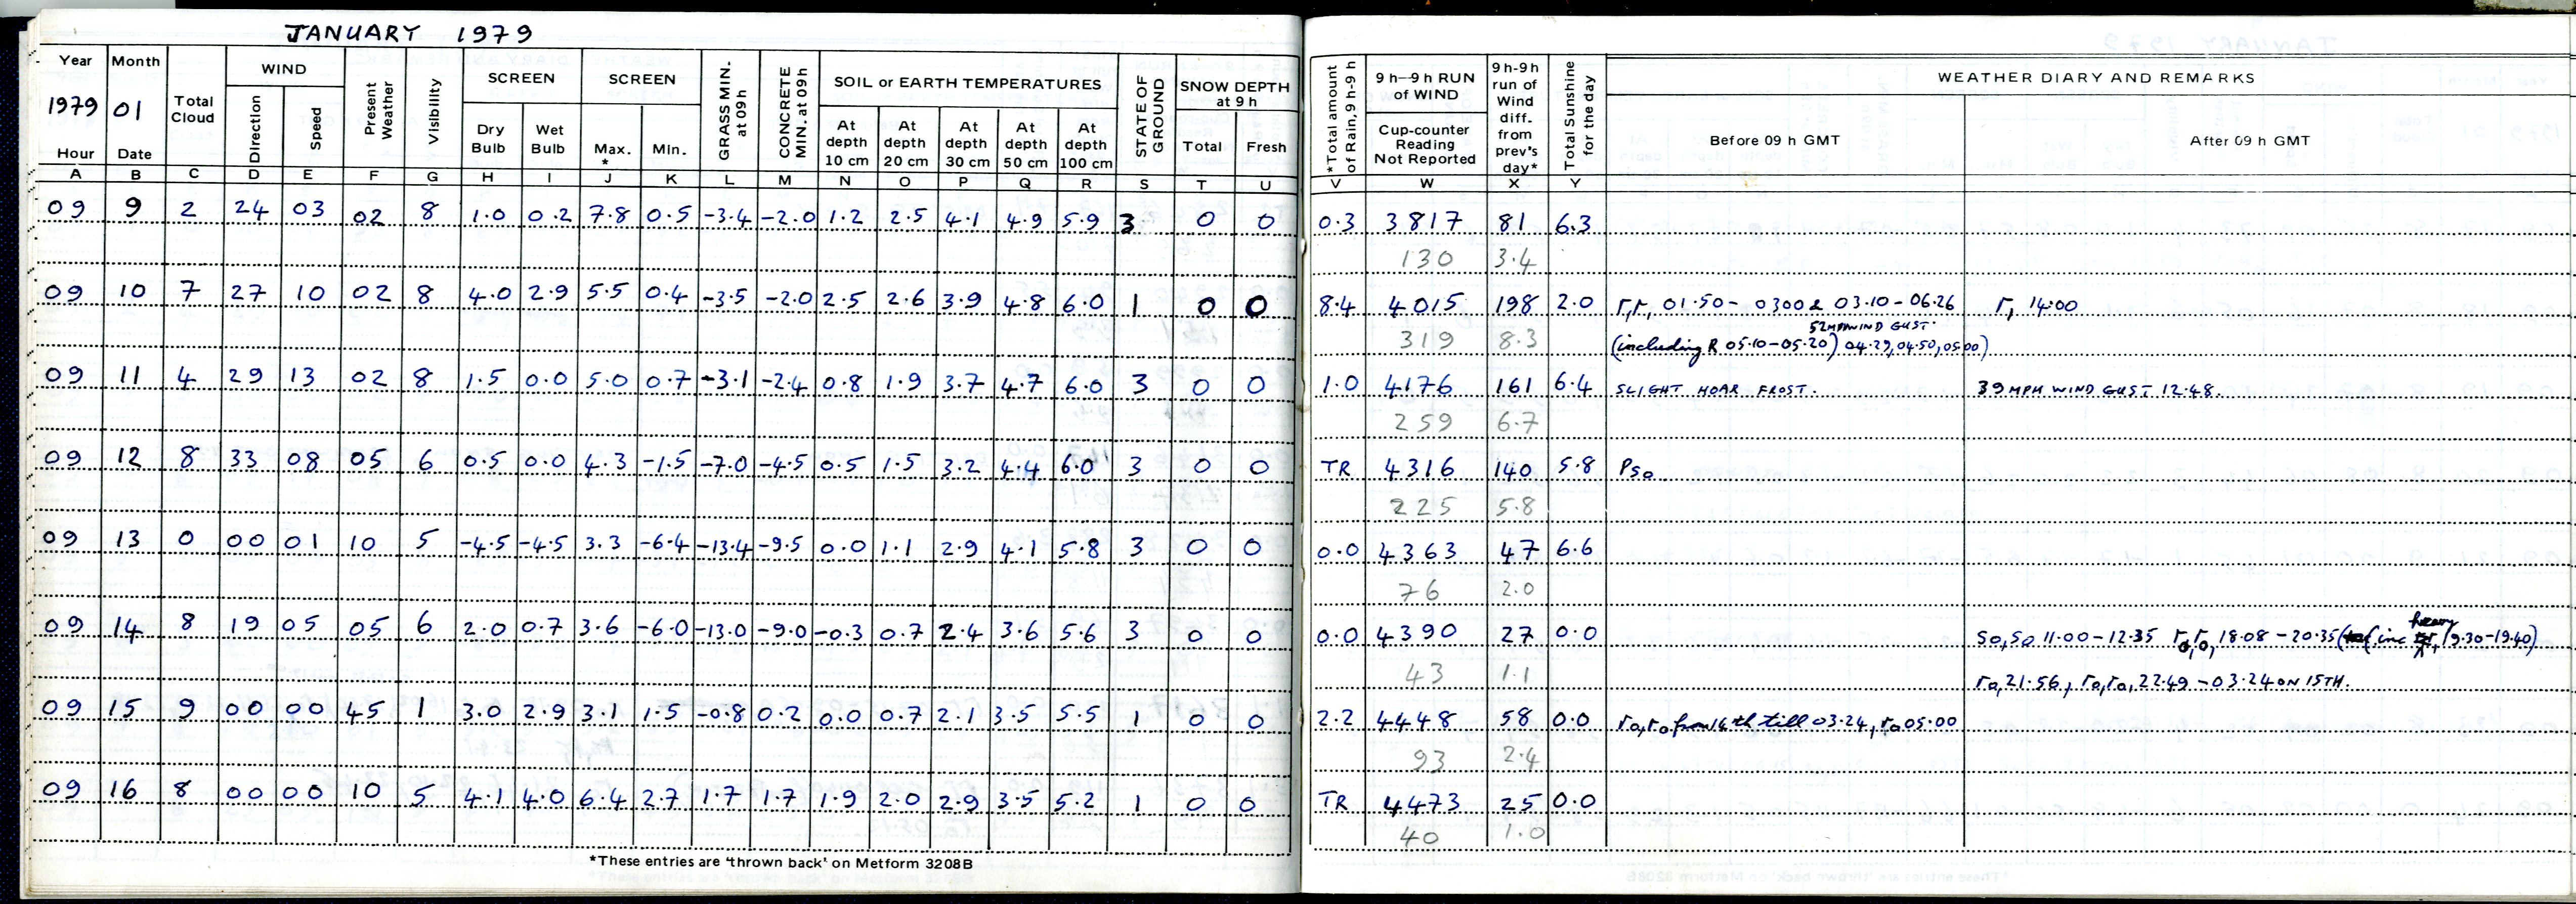 JANUARY 1979
Year Month Total Cloud WIND Present Weather Visibility SCREEN SCREEN GRASS MIN. at 09h CONCRETE MIN. at 09h SOIL or EARTH TEMPERATURES STATE OF GROUND SNOW DEPTH at 9 h *Total amount of Rain, 9h-9h 9 h–9 h RUN of WIND 9h-9h run of Wind diff. from prev's day* Total Sunshine for the day WEATHER DIARY AND REMARKS
1979 01 Direction Speed Dry Bulb Wet Bulb Max. * Min. At depth 10 cm At depth 20 cm At depth 30 cm At depth 50 cm At depth 100 cm Total Fresh Cup-counter Reading Not Reported Before 09 h GMT After 09 h GMT
Hour Date
A B C D E F G H I J K L M N O P Q R S T U V W X Y
09 9 2 24 03 02 8 1.0 0.2 7.8 0.5 -3.4 -2.0 1.2 2.5 4.1 4.9 5.9 3 0 0 0.3 3817 81 6.3
130 3.4
09 10 7 27 10 02 8 4.0 2.9 5.5 0.4 -3.5 -2.0 2.5 2.6 3.9 4.8 6.0 1 0 0 8.4 4015 198 2.0 r,r, 01.50 - 0300 & 03.10 - 06.26 r, 14:00
52MPH WIND GUST.
319 8.3 (including R 05.10-05.20) 04.29, 04.50, 05.00)
09 11 4 29 13 02 8 1.5 0.0 5.0 0.7 -3.1 -2.4 0.8 1.9 3.7 4.7 6.0 3 0 0 1.0 4176 161 6.4 SLIGHT HOAR FROST. 39 MPH WIND GUST 12.48.
259 6.7
09 12 8 33 08 05 6 0.5 0.0 4.3 -1.5 -7.0 -4.5 0.5 1.5 3.2 4.4 6.0 3 0 0 TR 4316 140 5.8 Pso
225 5.8
09 13 0 00 01 10 5 -4.5 -4.5 3.3 -6.4 -13.4 -9.5 0.0 1.1 2.9 4.1 5.8 3 0 0 0.0 4363 47 6.6
76 2.0
heavy
09 14 8 19 05 05 6 2.0 0.7 3.6 -6.0 -13.0 -9.0 -0.3 0.7 2.4 3.6 5.6 3 0 0 0.0 4390 27 0.0 so,so 11.00-12.35 ro,ro, 18.08 - 20.35 (inc 19.30-19.40)
43 1.1 ro, 21.56, ro,ro, 22.49 - 03.24 ON 15TH.
09 15 9 00 00 45 1 3.0 2.9 3.1 1.5 -0.8 0.2 0.0 0.7 2.1 3.5 5.5 1 0 0 2.2 4448 58 0.0 ro,ro from 14th till 03.24, ro 05.00
93 2.4
09 16 8 00 00 10 5 4.1 4.0 6.4 2.7 1.7 1.7 1.9 2.0 2.9 3.5 5.2 1 0 0 TR 4473 25 0.0
40 1.0
*These entries are 'thrown back' on Metform 3208B